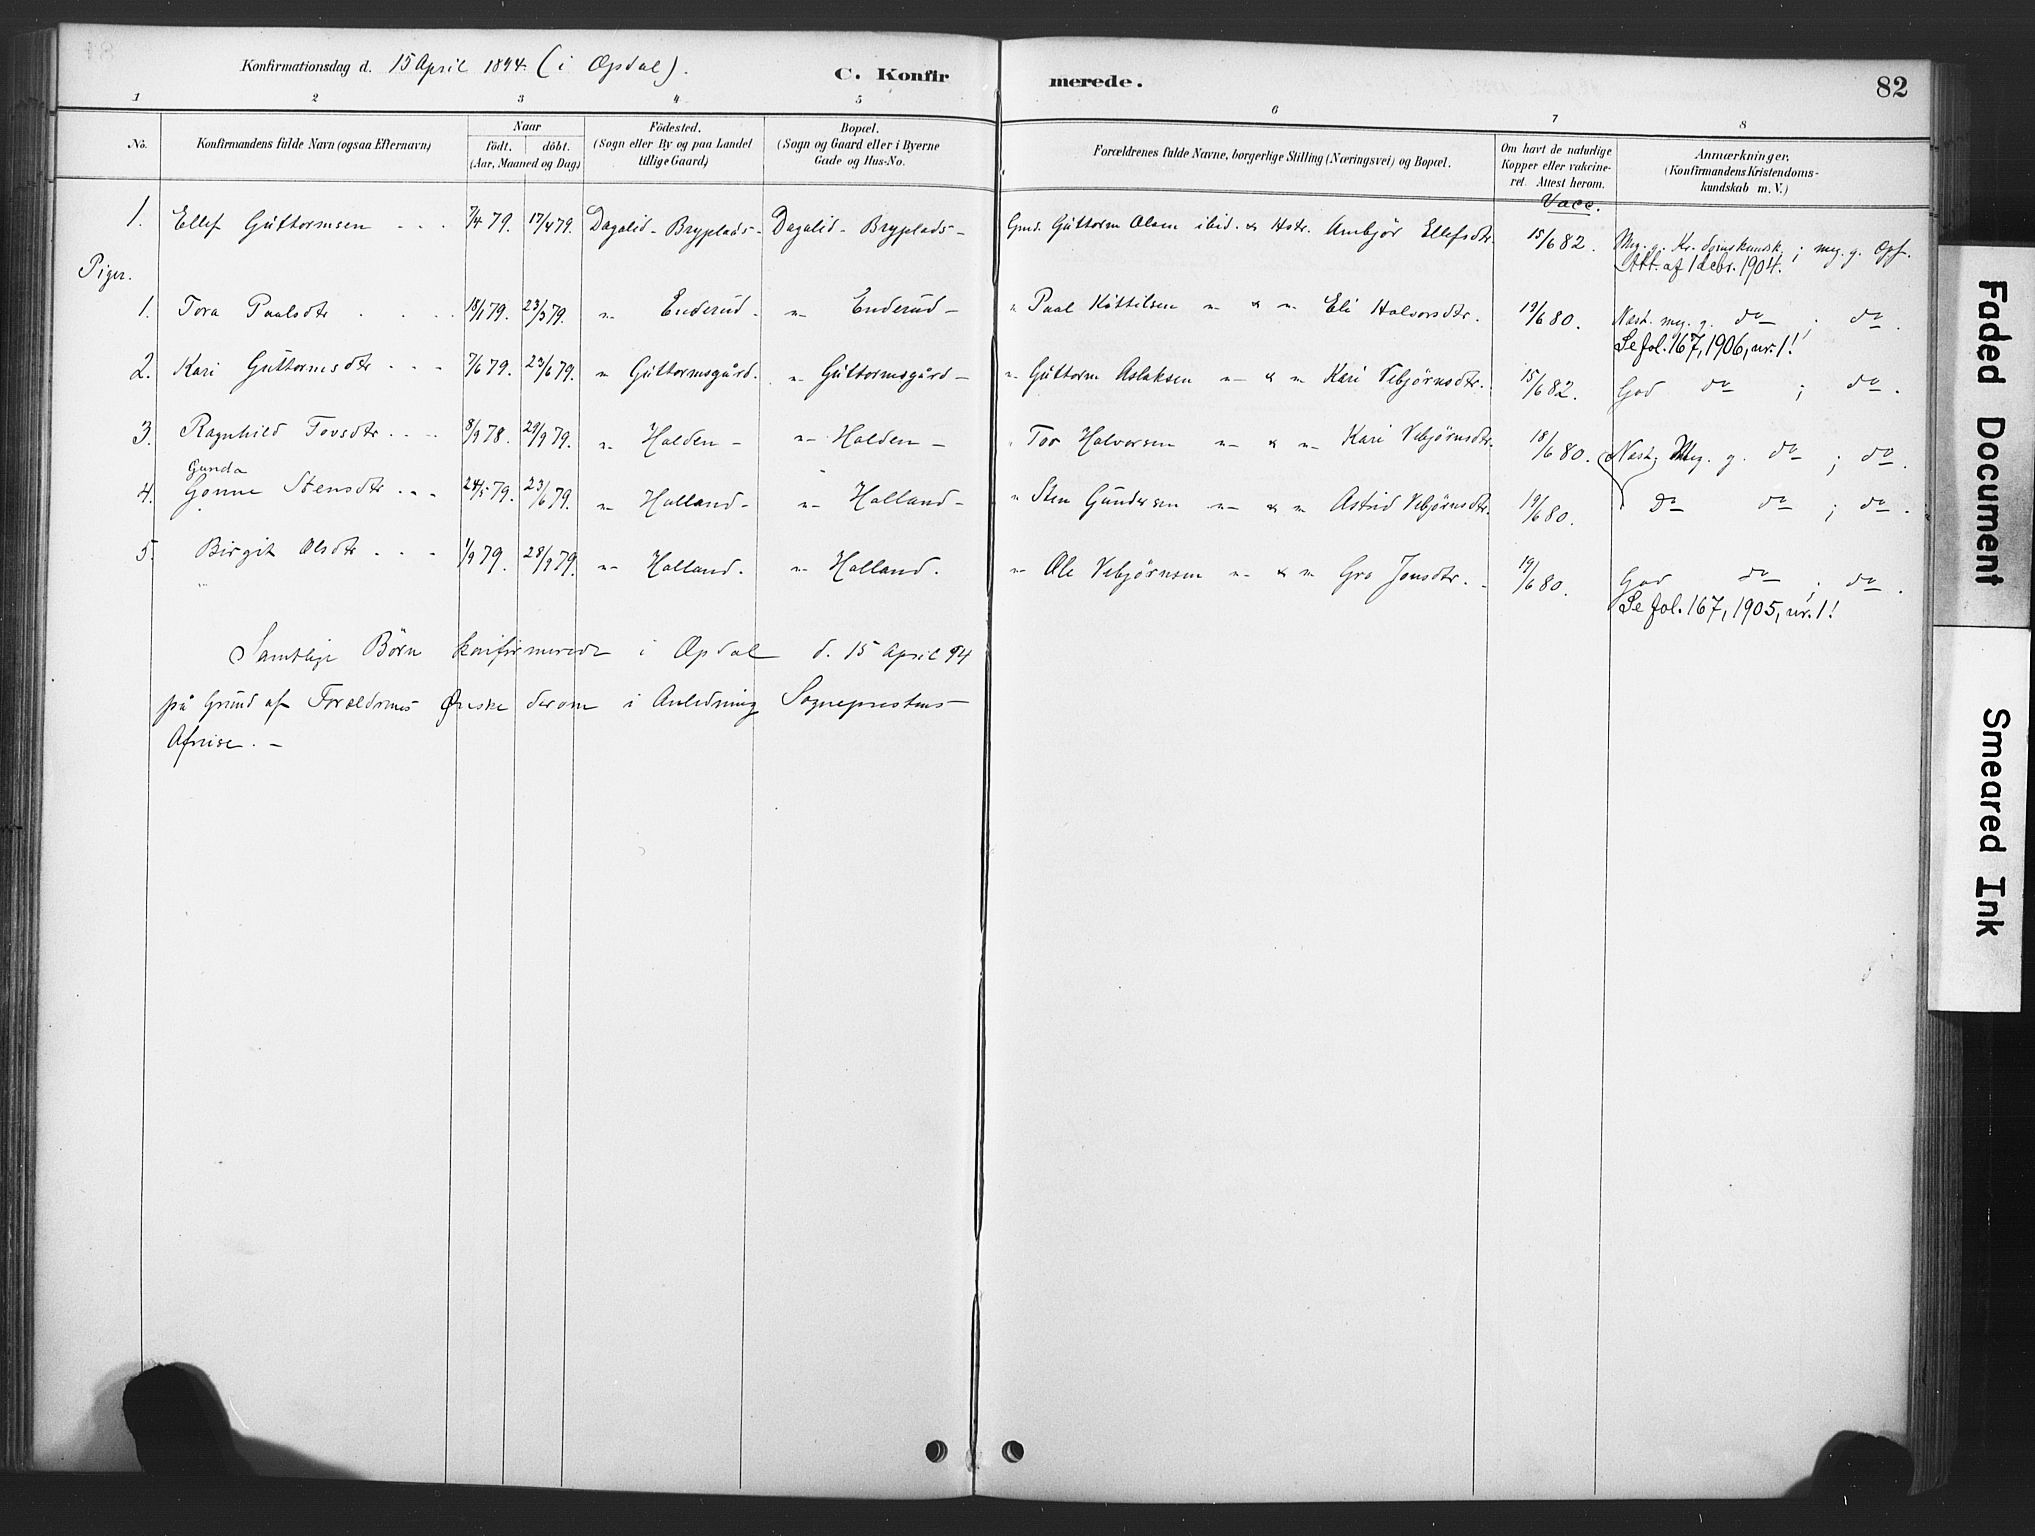 Konfirmationsdag d. 15 April 1894. (i Opdal).
C. Konfir merede. 82
1 2 3 4 5 6 7 8
No.
Konfirmandens fulde Navn (ogsaa Efternavn)
Naar
födt. döbt.
(Aar, Maaned og Dag)
Födested.
(Sogn eller By og paa Landet
tillige Gaard)
Bopæl.
(Sogn og Gaard eller i Byerne
Gade og Hus-No.
Forældrenes fulde Navne, borgerlige Stilling (Næringsvei) og Bopæl.
Om havt de naturlige
Kopper eller vakcine-
ret. Attest herom.
Vacc.
Anmærkninger.
(Konfirmandens Kristendoms-
kundskab m. V.)
1. Ellef Guttormsen 7/4 79. 17/4 79. Dagalid - Bryplads - Dagalid - Bryplads - Gmd. Guttorm Olsen ibid. & Hstr. Ambjør Ellefsdtr. 15/6 82. Mg. g. Kr. domskundsk.; meg. g. Opf.
Att. af 1 debr. 1904.
Piger.
1. Tora Paalsdtr 18/1 79. 23/3 79. " Enderud - " Enderud - " Paal Kittilsen " & " Eli Halvorsdtr. 19/6 80. Næst. meg. g. do ; do.
Se fol. 167, 1906, nr. 1!
2. Kari Guttormsdtr 7/6 79. 23/6 79. " Guttormsgård. " Guttormsgård - " Guttorm Aslaksen " & " Kari Vebjørnsdtr. 15/6 82. God do ; do.
3. Ragnhild Tovsdtr 8/9 78. 29/9 79. " Holden - " Holden - " Tov Halvorsen " & " Kari Vebjørnsdtr. 18/6 80. Næst. Meg. g. do ; do.
Gunda
4. Gonne Stensdtr 24/5 79. 23/6 79. " Holland - " Holland - " Sten Gundersen " & " Astrid Vebjørnsdtr. 19/6 80. Do do ; do.
5. Birgit Olsdtr 1/9 79. 28/9 79. " Holland. " Holland. " Ole Vebjørnsen " & " Gro Jonsdtr. 19/6 80. God do ; do.
Se fol. 167, 1905, nr. 1!
Samtlige Børn konfirmerede i Opdal d. 15 April 94
på Grund af Forældrenes Ønske derom i Anledning Sogneprestens
Afreise. -
Faded Document
Smeared Ink